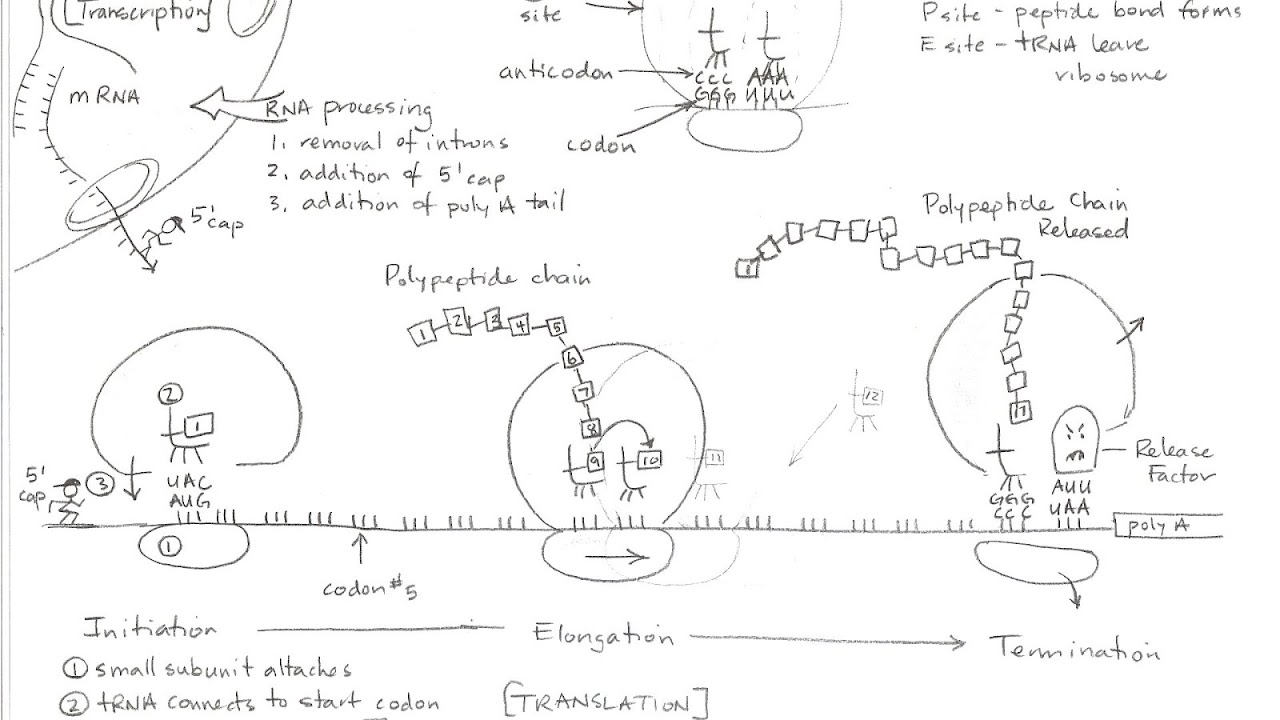 [Transcription]
site
P site - peptide bond forms
E site - tRNA leave
ribosome
anticodon
CCC AAA
GGG UUU
codon
mRNA
RNA processing
1. removal of introns
2. addition of 5' cap
3. addition of poly A tail
5' cap
Polypeptide Chain
Released
1
Polypeptide chain
1 2 3 4 5
6
7
8
9 10 11
12
17
2
1
5'
cap
3
UAC
AUG
1
codon #5
Release
Factor
GGG
CCC
AUU
UAA
poly A
Initiation
Elongation
Termination
1 small subunit attaches
2 tRNA connects to start codon
[TRANSLATION]